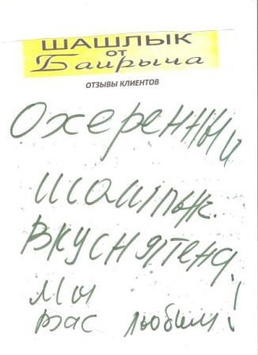 ШАШЛЫК
от
Баирыча
ОТЗЫВЫ КЛИЕНТОВ
Охеренный
шашлык.
Вкуснятена,
мы
вас любим!